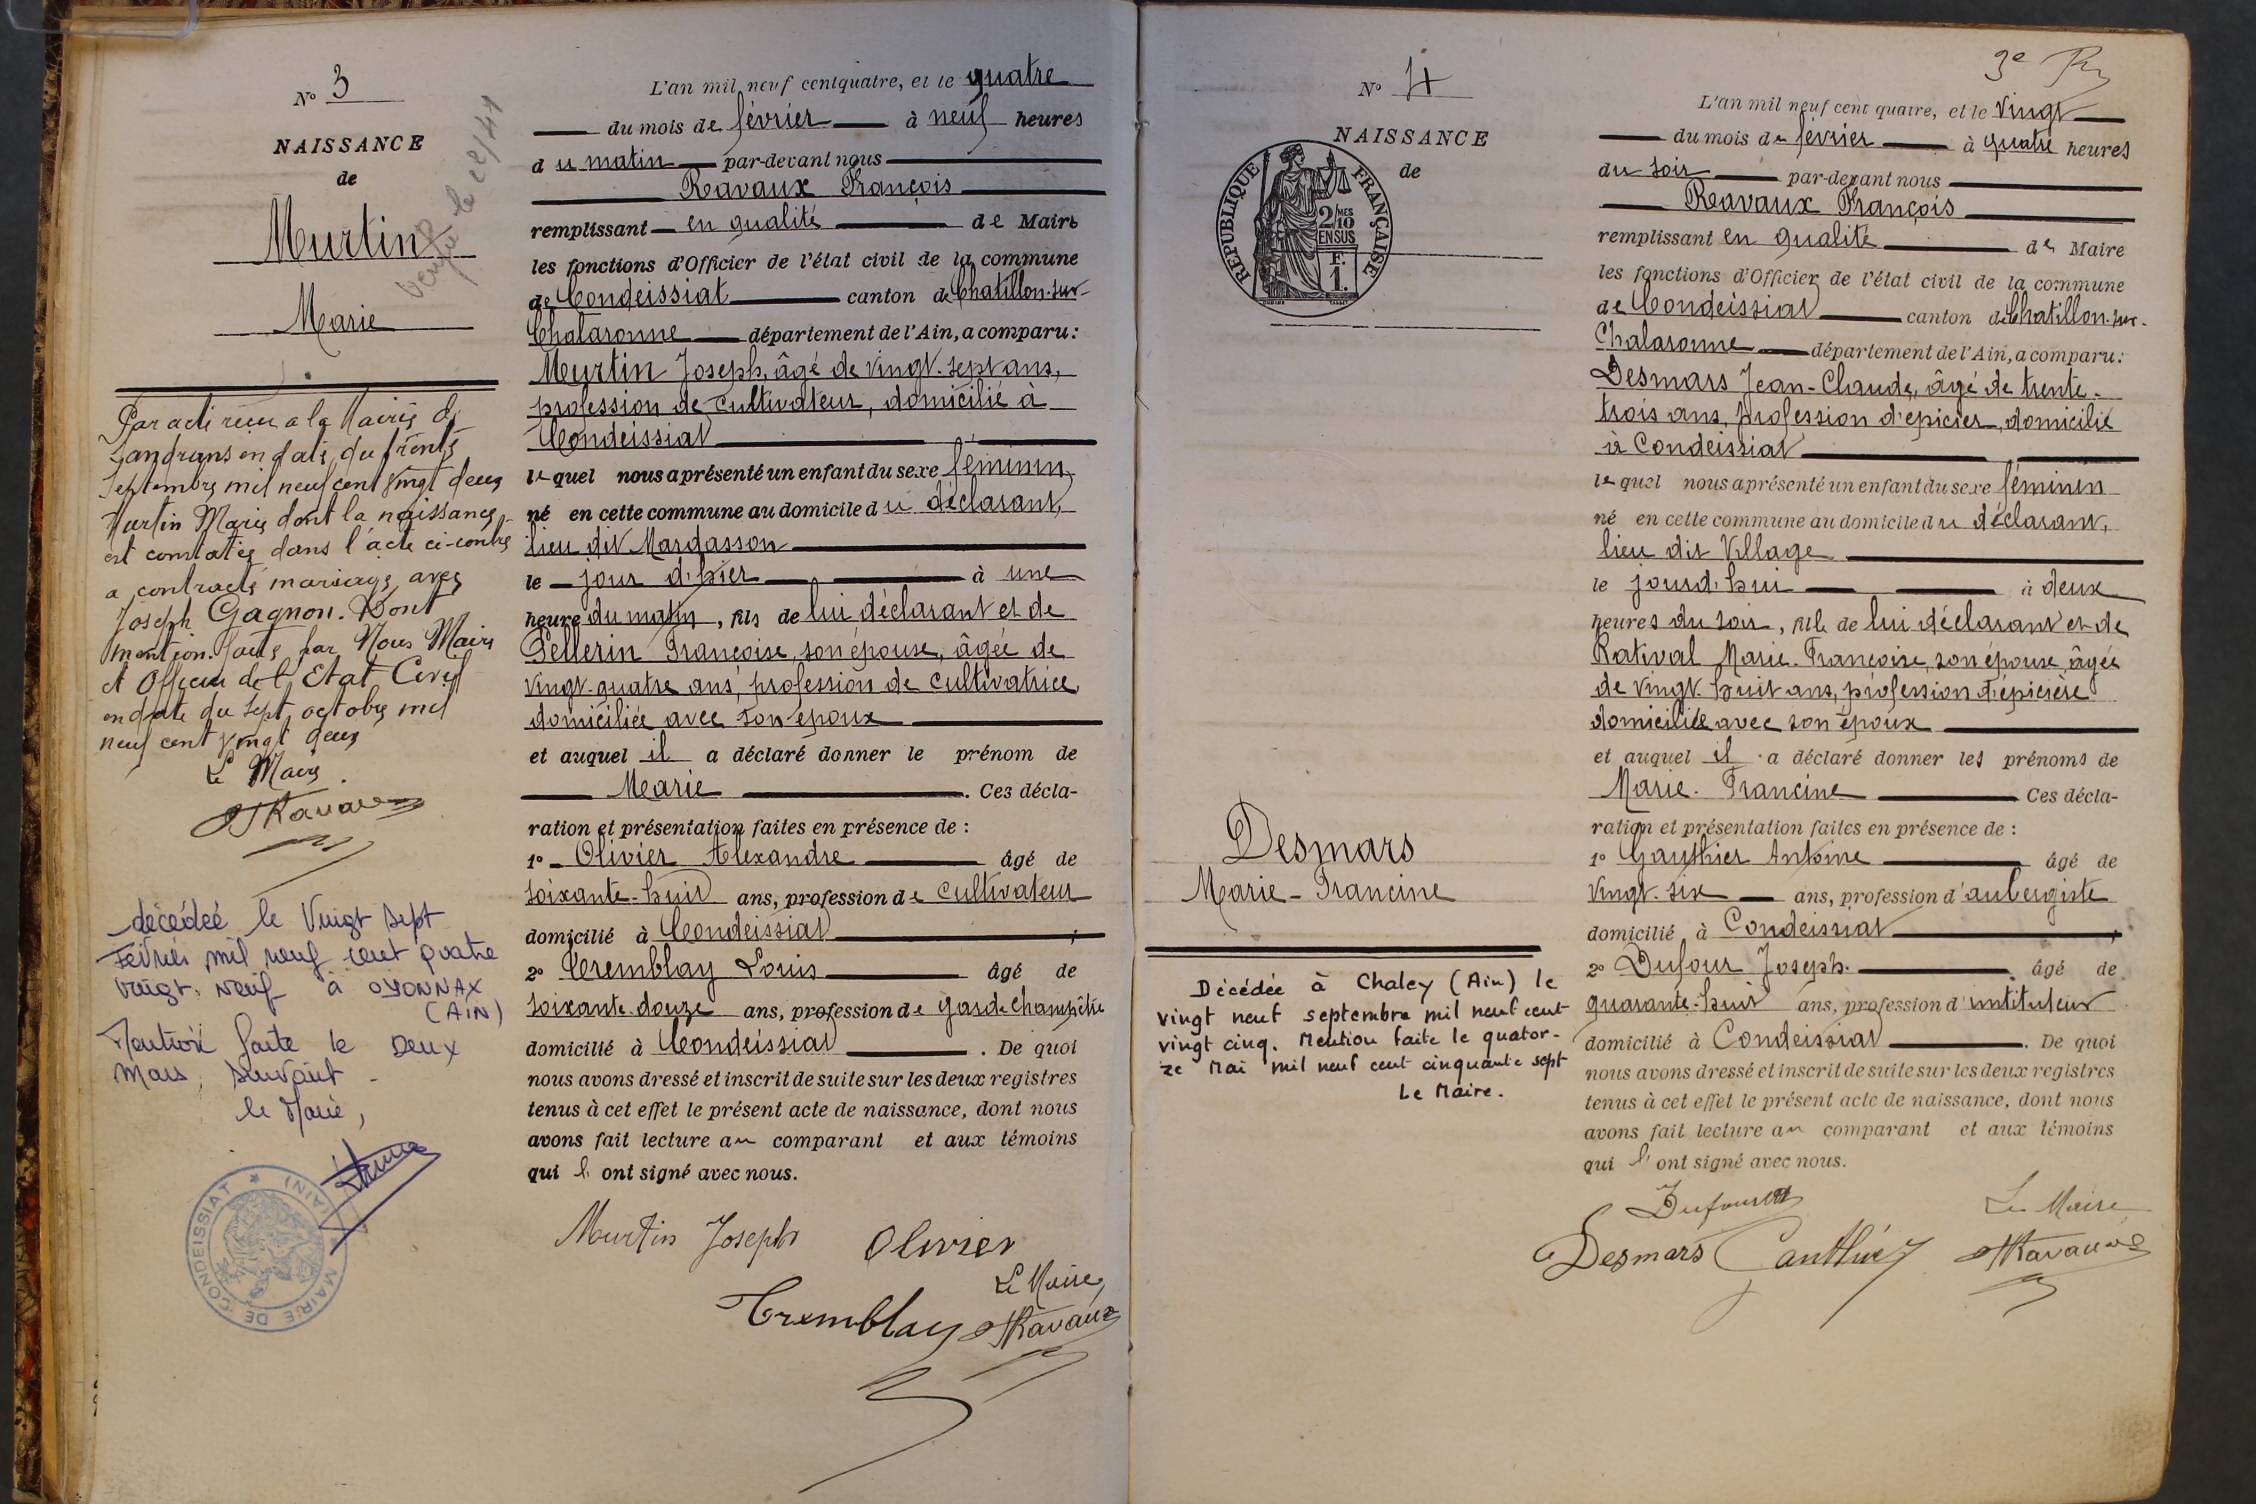 N° 3
NAISSANCE
de
Murtin
Marie
Par acte reçu a la Mairie de
Landrans en date du trente
Septembre mil neuf cent vingt deux
Murtin Marie dont la naissance
est constatée dans l'acte ci-contre
a contracté mariage avec
Joseph Gagnon. Dont
mention faite par Nous Maire
et Officier de l'Etat Civil
en date du sept octobre mil
neuf cent vingt deux
Le Maire
Ravaux
décédeé le Vingt sept
Fevrier mil neuf cent quatre
vingt. neuf à OYONNAX
(AIN)
Mention faite le Deux
Mars, suivant -
le Maire,
MAIRIE DE CONDEISSIAT (AIN)
L'an mil neuf cent quatre, et le quatre
du mois de février à neuf heures
du matin par-devant nous
Ravaux François
remplissant en qualité de Maire
les fonctions d'Officier de l'état civil de la commune
de Condeissiat canton de Chatillon-sur-
Chalaronne département de l'Ain, a comparu:
Murtin Joseph, âgé de vingt-sept ans,
profession de cultivateur, domicilié à
Condeissiat
lequel nous a présenté un enfant du sexe féminin,
né en cette commune au domicile du déclarant,
lieu dit Mardasson
le jour d'hier à une
heure du matin, fils de lui déclarant et de
Pellerin Françoise, son épouse, âgée de
vingt-quatre ans, profession de cultivatrice,
domiciliée avec son époux
et auquel il a déclaré donner le prénom de
Marie. Ces décla-
ration et présentation faites en présence de :
1° Olivier Alexandre âgé de
soixante-huit ans, profession de cultivateur
domicilié à Condeissiat ;
2° Tremblay Louis âgé de
soixante-douze ans, profession de garde champêtre
domicilié à Condeissiat. De quoi
nous avons dressé et inscrit de suite sur les deux registres
tenus à cet effet le présent acte de naissance, dont nous
avons fait lecture au comparant et aux témoins
qui l'ont signé avec nous.
Murtin Joseph Olivier
Le Maire,
Tremblay Ravaux
3e
N° 4
NAISSANCE
de
REPUBLIQUE FRANÇAISE
2/MES
10
EN SUS
F.
1.
Desmars
Marie-Francine
Décédée à Chaley (Ain) le
vingt neuf septembre mil neuf cent
vingt cinq. Mention faite le quator-
ze Mai mil neuf cent cinquante sept
Le Maire.
L'an mil neuf cent quatre, et le vingt
du mois de février à quatre heures
du soir par-devant nous
Ravaux François
remplissant en qualité de Maire
les fonctions d'Officier de l'état civil de la commune
de Condeissiat canton de Chatillon-sur-
Chalaronne département de l'Ain, a comparu:
Desmars Jean-Claude, âgé de trente-
trois ans, profession d'epicier, domicilié
à Condeissiat
lequel nous a présenté un enfant du sexe féminin
né en cette commune au domicile du déclarant,
lieu dit Village
le jourd'hui à deux
heures du soir, fille de lui déclarant et de
Rativat Marie-Françoise, son épouse, âgée
de vingt-huit ans, profession d'épicière
domiciliée avec son époux
et auquel il a déclaré donner les prénoms de
Marie-Francine Ces décla-
ration et présentation faites en présence de :
1° Gauthier Antoine âgé de
vingt-six ans, profession d'aubergiste
domicilié à Condeissiat ;
2° Dufour Joseph. âgé de
quarante-huit ans, profession d'instituteur
domicilié à Condeissiat. De quoi
nous avons dressé et inscrit de suite sur les deux registres
tenus à cet effet le présent acte de naissance, dont nous
avons fait lecture au comparant et aux témoins
qui l'ont signé avec nous.
Dufour Le Maire
Desmars Gauthier Ravaux